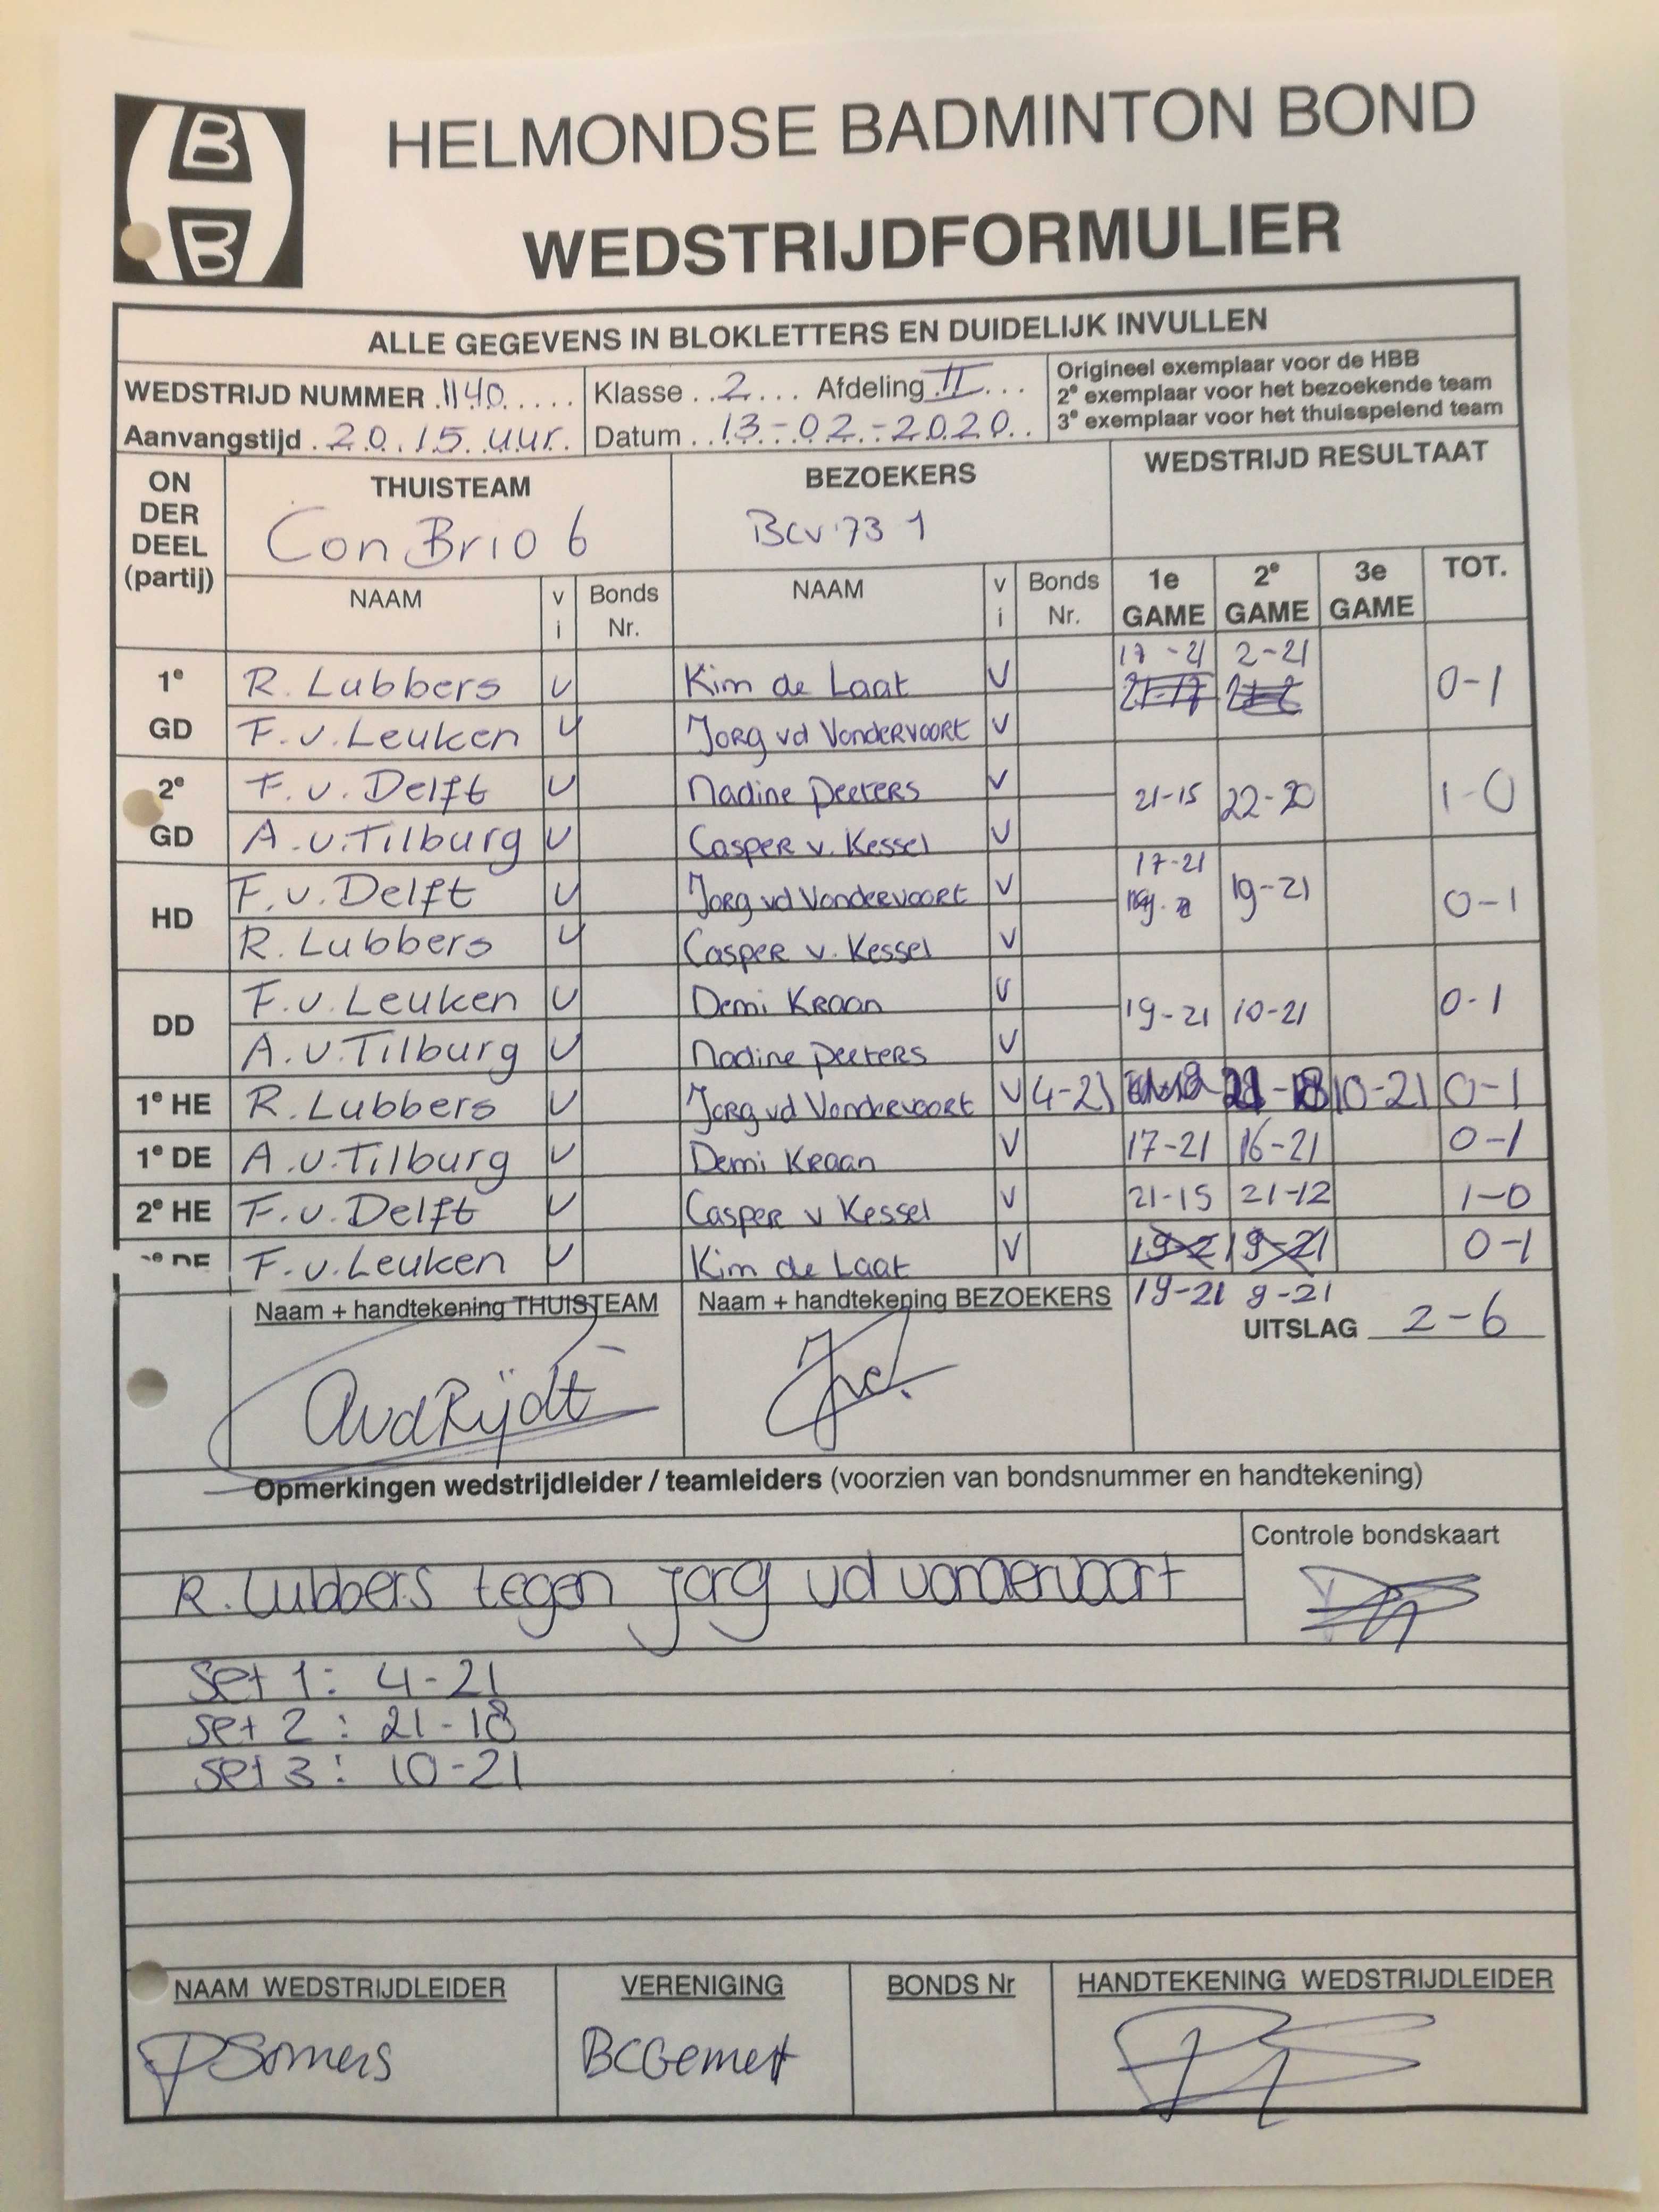 B
B
HELMONDSE BADMINTON BOND
WEDSTRIJDFORMULIER
ALLE GEGEVENS IN BLOKLETTERS EN DUIDELIJK INVULLEN
WEDSTRIJD NUMMER 1140 Klasse 2 Afdeling II
Aanvangstijd 20.15 uur Datum 13-02-2020
Origineel exemplaar voor de HBB
2e exemplaar voor het bezoekende team
3e exemplaar voor het thuisspelend team
ON DER DEEL (partij) THUISTEAM BEZOEKERS WEDSTRIJD RESULTAAT
Con Brio 6 BCV'73 1
NAAM vi Bonds Nr. NAAM vi Bonds Nr. 1e GAME 2e GAME 3e GAME TOT.
1e GD R. Lubbers V Kim de Laat V 17-21 2-21 0-1
F.v.Leuken V Jorg vd Vondervoort V
2e GD F.v. Delft V Nadine Peeters V 21-15 22-20 1-0
A.v.Tilburg V Casper v. Kessel V
HD F.v. Delft V Jorg vd Vondervoort V 17-21 19-21 0-1
R. Lubbers V Casper v. Kessel V
DD F.v.Leuken V Demi Kraan V 19-21 10-21 0-1
A.v.Tilburg V Nadine Peeters V
1e HE R. Lubbers V Jorg vd Vondervoort V 4-21 21-18 10-21 0-1
1e DE A.v.Tilburg V Demi Kraan V 17-21 16-21 0-1
2e HE F.v. Delft V Casper v Kessel V 21-15 21-12 1-0
e DE F.v.Leuken V Kim de Laat V 19-21 9-21 0-1
Naam + handtekening THUISTEAM Naam + handtekening BEZOEKERS 19-21 9-21
UITSLAG 2-6
AvdRijdt
Opmerkingen wedstrijdleider / teamleiders (voorzien van bondsnummer en handtekening)
Controle bondskaart
R. Lubbers tegen jorg vd vondervoort
Set 1: 4-21
Set 2: 21-18
Set 3: 10-21
NAAM WEDSTRIJDLEIDER VERENIGING BONDS Nr HANDTEKENING WEDSTRIJDLEIDER
PSomers BCGemert